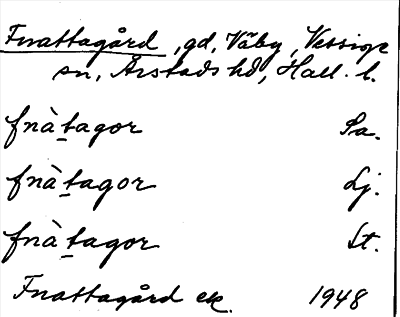 Fnattagård, gd, Väby, Vessige
sn, Årstads hd, Hall. l.
fnàt̲agor Sa.
fnàt̲agor Lj.
fnàt̲agor St.
Fnattagård ek. 1948